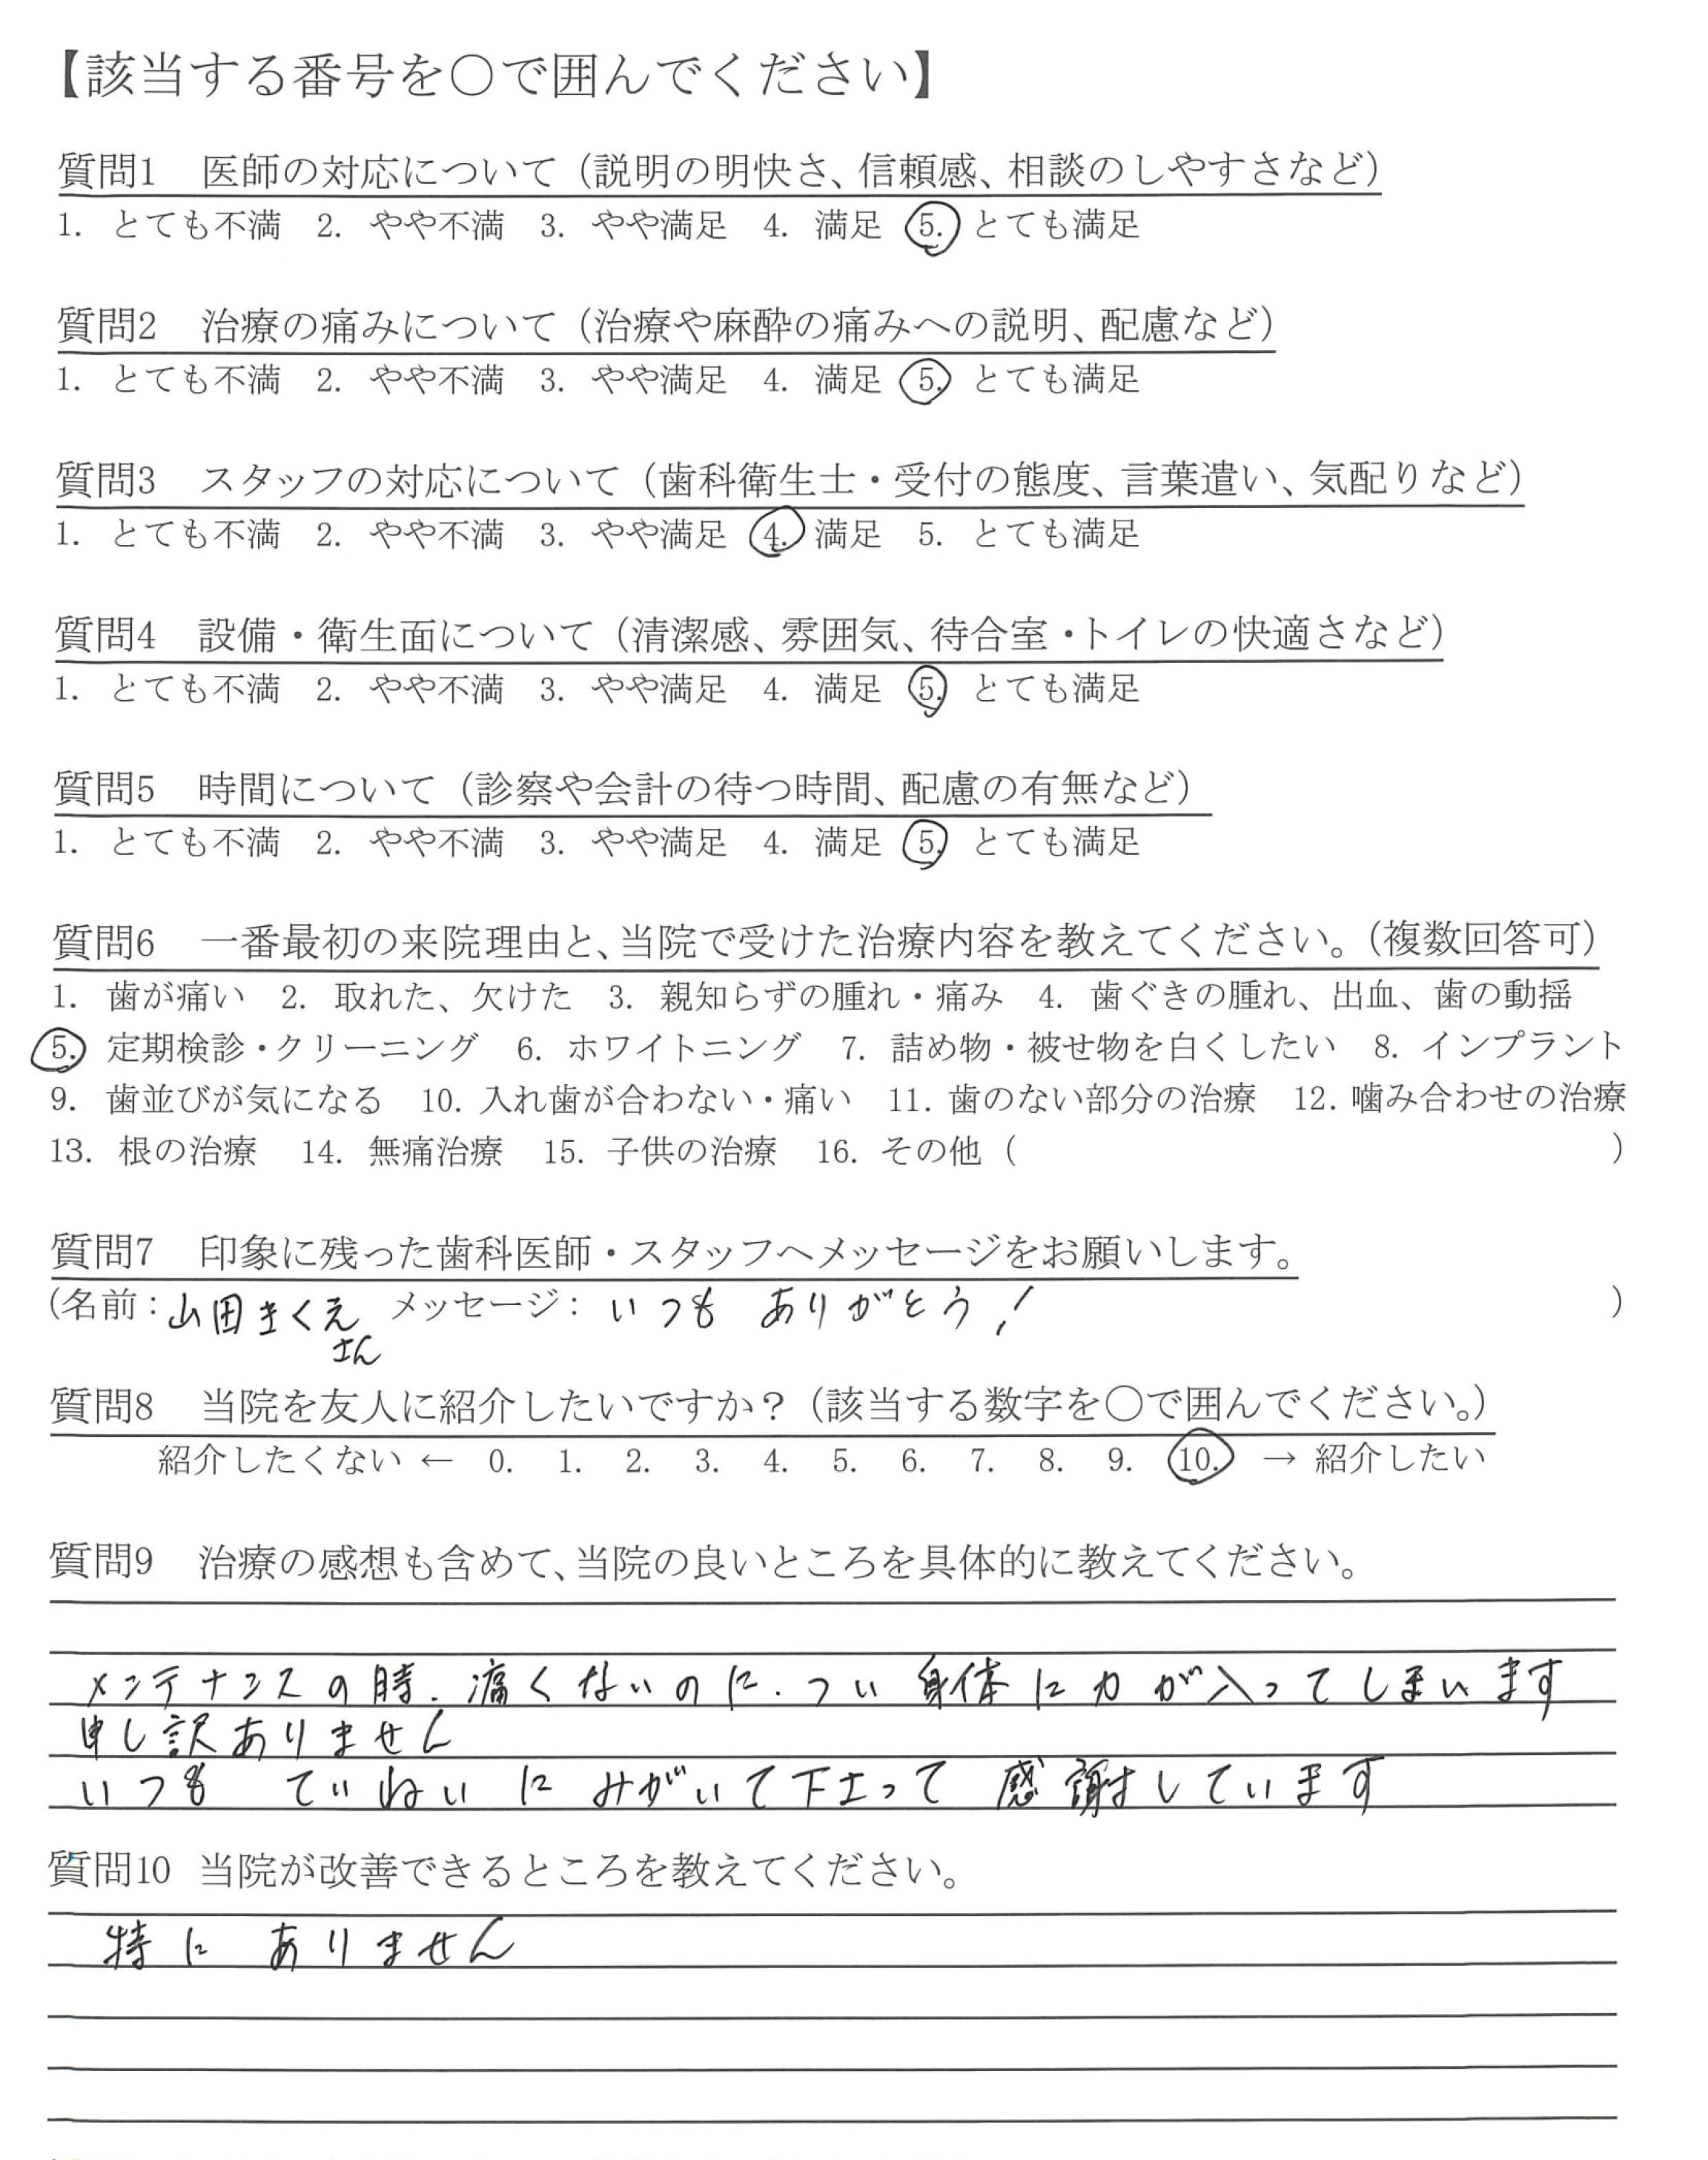 【該当する番号を○で囲んでください】
質問1　医師の対応について（説明の明快さ、信頼感、相談のしやすさなど）
1. とても不満　2. やや不満　3. やや満足　4. 満足　5. とても満足
質問2　治療の痛みについて（治療や麻酔の痛みへの説明、配慮など）
1. とても不満　2. やや不満　3. やや満足　4. 満足　5. とても満足
質問3　スタッフの対応について（歯科衛生士・受付の態度、言葉遣い、気配りなど）
1. とても不満　2. やや不満　3. やや満足　4. 満足　5. とても満足
質問4　設備・衛生面について（清潔感、雰囲気、待合室・トイレの快適さなど）
1. とても不満　2. やや不満　3. やや満足　4. 満足　5. とても満足
質問5　時間について（診察や会計の待つ時間、配慮の有無など）
1. とても不満　2. やや不満　3. やや満足　4. 満足　5. とても満足
質問6　一番最初の来院理由と、当院で受けた治療内容を教えてください。（複数回答可）
1. 歯が痛い　2. 取れた、欠けた　3. 親知らずの腫れ・痛み　4. 歯ぐきの腫れ、出血、歯の動揺
5. 定期検診・クリーニング　6. ホワイトニング　7. 詰め物・被せ物を白くしたい　8. インプラント
9. 歯並びが気になる　10. 入れ歯が合わない・痛い　11. 歯のない部分の治療　12. 噛み合わせの治療
13. 根の治療　14. 無痛治療　15. 子供の治療　16. その他（　）
質問7　印象に残った歯科医師・スタッフへメッセージをお願いします。
（名前：山田きくえ　メッセージ：いつも ありがとう！　）
さん
質問8　当院を友人に紹介したいですか？（該当する数字を○で囲んでください。）
紹介したくない ← 0. 1. 2. 3. 4. 5. 6. 7. 8. 9. 10. → 紹介したい
質問9　治療の感想も含めて、当院の良いところを具体的に教えてください。
メンテナンスの時. 痛くないのに. つい 身体に力が入ってしまいます
申し訳ありません
いつも ていねいに みがいて下さって 感謝しています
質問10　当院が改善できるところを教えてください。
特に ありません